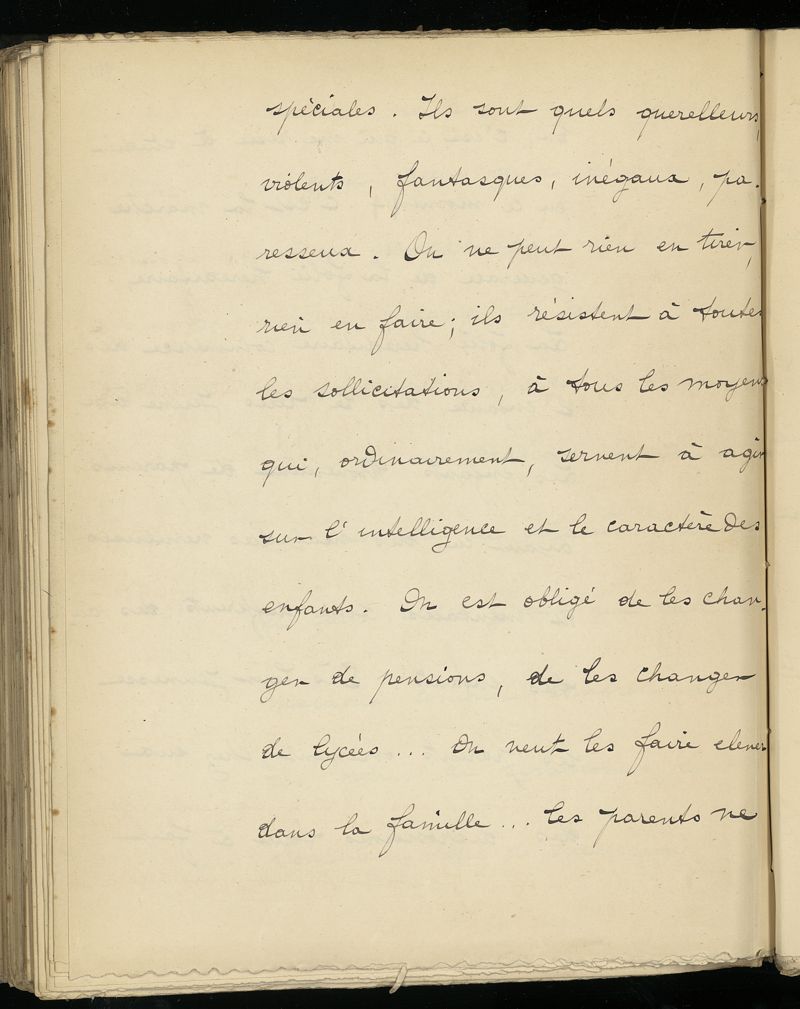 spéciales. Ils sont quels querelleurs,
violents, fantasques, inégaux, pa-
resseux. On ne peut rien en tirer,
rien en faire; ils résistent à toutes
les sollicitations, à tous les moyens
qui, ordinairement, servent à agir
sur l'intelligence et le caractère des
enfants. On est obligé de les chan-
ger de pensions, de les changer
de lycées... On veut les faire elever
dans la famille... les parents ne